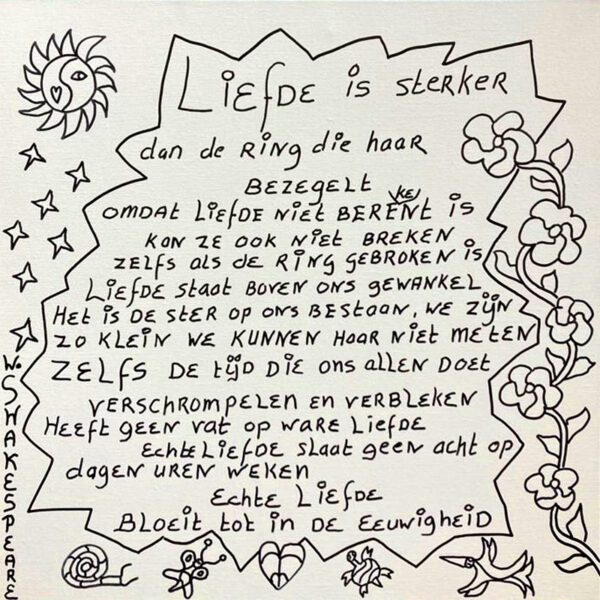 LiEfDE is StERKER
dan de RiNg die haar
BEZEGELT
OMDAt LiEfDE NiEt BERENt iS
KE
KON ZE OOK NiEt BREKEN
ZELFS ALS dE RiNG GEBROKEN iS
LiEfDE staat BOVEN ONS GEWANKEL
HEt iS DE StER OP ONS BEStAAN, WE ZijN
ZO KLEiN WE KUNNEN HAAR NiEt MEtEN
ZELfS DE tijD DiE ONS ALLEN DOEt
VERSCHROMPELEN EN VERBLEKEN
HEEft GEEN VAt OP WARE LiEfDE
EChtE LiEfDE SLAAt GEEN ACHt OP
dAGEN UREN WEKEN
EChtE LiEfDE
BLOEit tot iN DE EEUWiGHEiD
W. SHAKESPEARE